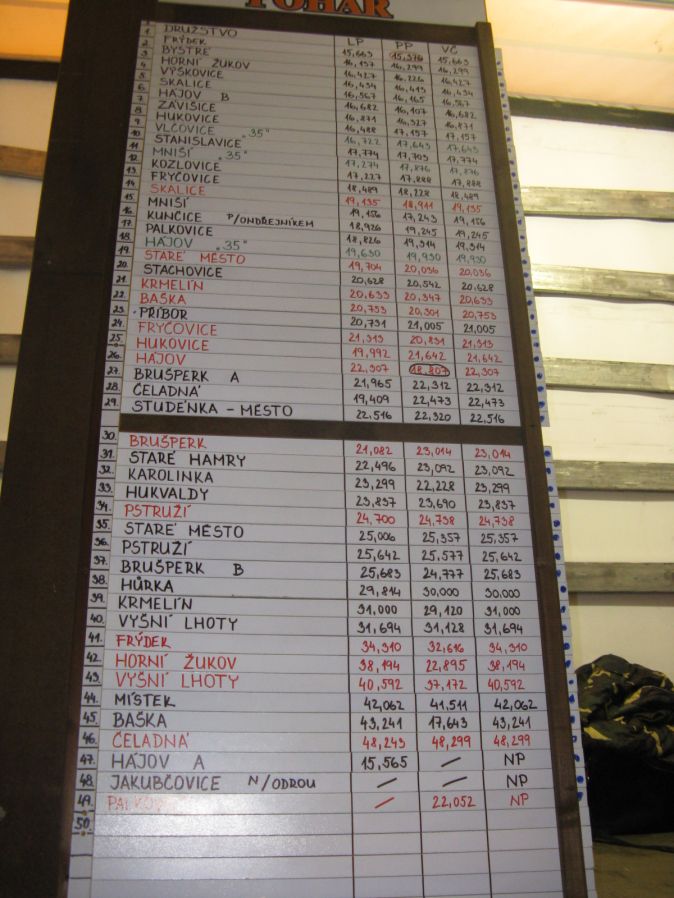 POHÁR
DRUŽSTVO LP PP VČ
1. FRÝDEK 15,663 15,376 15,663
2. BYSTRÉ 16,157 16,299 16,299
3. HORNÍ ŽUKOV 16,427 16,226 16,427
4. VÝŠKOVICE 16,434 16,413 16,434
5. SKALICE 16,567 16,165 16,567
6. HÁJOV B 16,682 16,107 16,682
7. ZÁVIŠICE 16,871 16,327 16,871
8. HUKOVICE 16,488 17,157 17,157
9. VLČOVICE „35" 16,722 17,643 17,643
10. STANISLAVICE 17,774 17,703 17,774
11. MNIŠÍ „35" 17,274 17,876 17,876
12. KOZLOVICE 17,227 17,888 17,888
13. FRYČOVICE 18,489 18,228 18,489
14. SKALICE 19,135 18,911 19,135
15. MNIŠÍ 19,156 17,243 19,156
16. KUNČICE P/ONDŘEJNÍKEM 18,926 19,245 19,245
17. PALKOVICE 18,826 19,314 19,314
18. HÁJOV „35" 19,630 19,930 19,930
19. STARÉ MĚSTO 19,704 20,036 20,036
20. STACHOVICE 20,628 20,542 20,628
21. KRMELÍN 20,633 20,347 20,633
22. BAŠKA 20,753 20,301 20,753
23. PŘÍBOR 20,731 21,005 21,005
24. FRYČOVICE 21,313 20,831 21,313
25. HUKOVICE 19,992 21,642 21,642
26. HÁJOV 22,307 18,807 22,307
27. BRUŠPERK A 21,965 22,312 22,312
28. ČELADNÁ 19,409 22,473 22,473
29. STUDÉNKA - MĚSTO 22,516 22,320 22,516
30. BRUŠPERK 21,082 23,014 23,014
31. STARÉ HAMRY 22,496 23,092 23,092
32. KAROLINKA 23,299 22,228 23,299
33. HUKVALDY 23,837 23,690 23,837
34. PSTRUŽÍ 24,700 24,738 24,738
35. STARÉ MĚSTO 25,006 25,357 25,357
36. PSTRUŽÍ 25,642 25,577 25,642
37. BRUŠPERK B 25,683 24,777 25,683
38. HŮRKA 29,814 30,000 30,000
39. KRMELÍN 31,000 29,120 31,000
40. VYŠNÍ LHOTY 31,694 31,128 31,694
41. FRÝDEK 34,310 32,616 34,310
42. HORNÍ ŽUKOV 38,194 22,895 38,194
43. VYŠNÍ LHOTY 40,592 37,172 40,592
44. MÍSTEK 42,062 41,511 42,062
45. BAŠKA 43,241 17,643 43,241
46. ČELADNÁ 48,243 48,299 48,299
47. HÁJOV A 15,565 — NP
48. JAKUBČOVICE N/ODROU — — NP
49. — 22,052 NP
50.